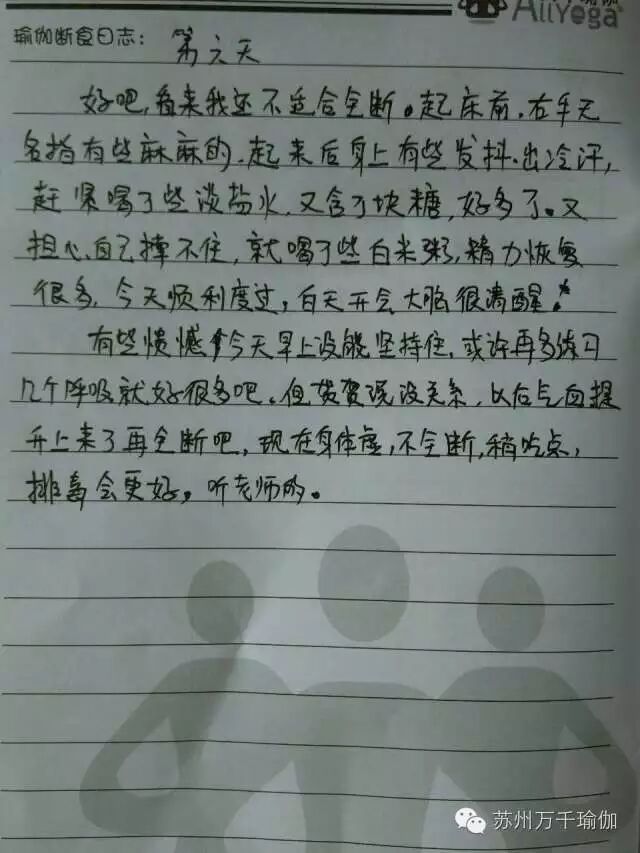 AllYoga
瑜伽断食日志： 第六天
好吧，看来我还不适合全断。起床前，右手无
名指有些麻麻的，起来后身上有些发抖、出冷汗，
赶紧喝了些淡盐水，又含了块糖，好多了。又
担心自己撑不住，就喝了些白米粥，精力恢复
很多，今天顺利度过，白天开会大脑很清醒！
有些愤憾今天早上没能坚持住，或许再多练习
几个呼吸就好很多吧。但贺贺说没关系，以后气血提
升上来了再全断吧，现在身体虚，不全断，稍吃点，
排毒会更好。听老师的。
苏州万千瑜伽